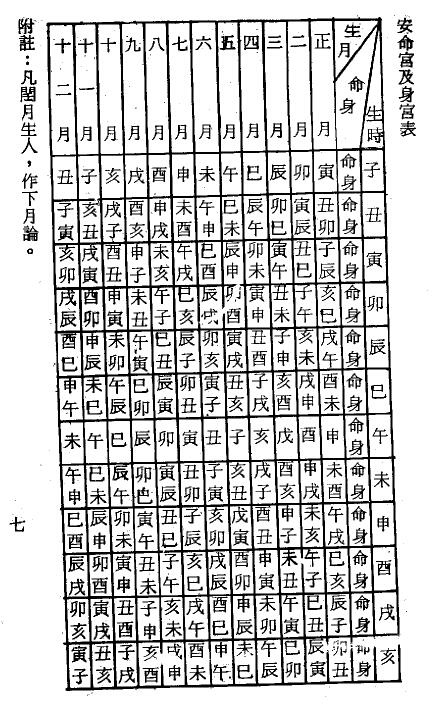 安命宮及身宮表
生時 子 丑 寅 卯 辰 巳 午 未 申 酉 戌 亥
生月 命身 命身 命身 命身 命身 命身 命身 命身 命身 命身 命身 命身 命身
正月 寅 丑卯 子辰 亥巳 戌午 酉未 申 未酉 午戌 巳亥 辰子 卯丑
二月 卯 寅辰 丑巳 子午 亥未 戌申 酉 申戌 未亥 午子 巳丑 辰寅
三月 辰 卯巳 寅午 丑未 子申 亥酉 戊 酉亥 申子 未丑 午寅 巳卯
四月 巳 辰午 卯未 寅申 丑酉 子戌 亥 戌子 酉丑 申寅 未卯 午辰
五月 午 巳未 辰申 卯酉 寅戌 丑亥 子 亥丑 戊寅 酉卯 申辰 未巳
六月 未 午申 巳酉 辰戌 卯亥 寅子 丑 子寅 亥卯 戌辰 酉巳 申午
七月 申 未酉 午戌 巳亥 辰子 卯丑 寅 丑卯 子辰 亥巳 戌午 酉未
八月 酉 申戌 未亥 午子 巳丑 辰寅 卯 寅辰 丑巳 子午 亥未 戌申
九月 戌 酉亥 申子 未丑 午寅 巳卯 辰 卯巳 寅午 丑未 子申 亥酉
十月 亥 戌子 酉丑 申寅 未卯 午辰 巳 辰午 卯未 寅申 丑酉 子戌
十一月 子 亥丑 戌寅 酉卯 申辰 未巳 午 巳未 辰申 卯酉 寅戌 丑亥
十二月 丑 子寅 亥卯 戌辰 酉巳 申午 未 午申 巳酉 辰戌 卯亥 寅子
附註：凡閏月生人，作下月論。
七